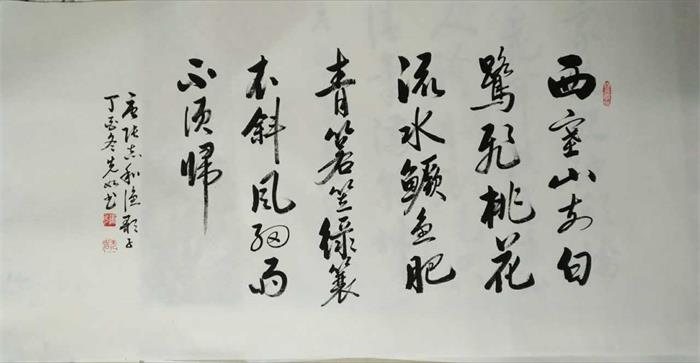 西塞山前白
鹭飞桃花
流水鳜鱼肥
青箬笠绿蓑
衣斜风细雨
不须归
唐张志和渔歌子
丁酉冬先
书